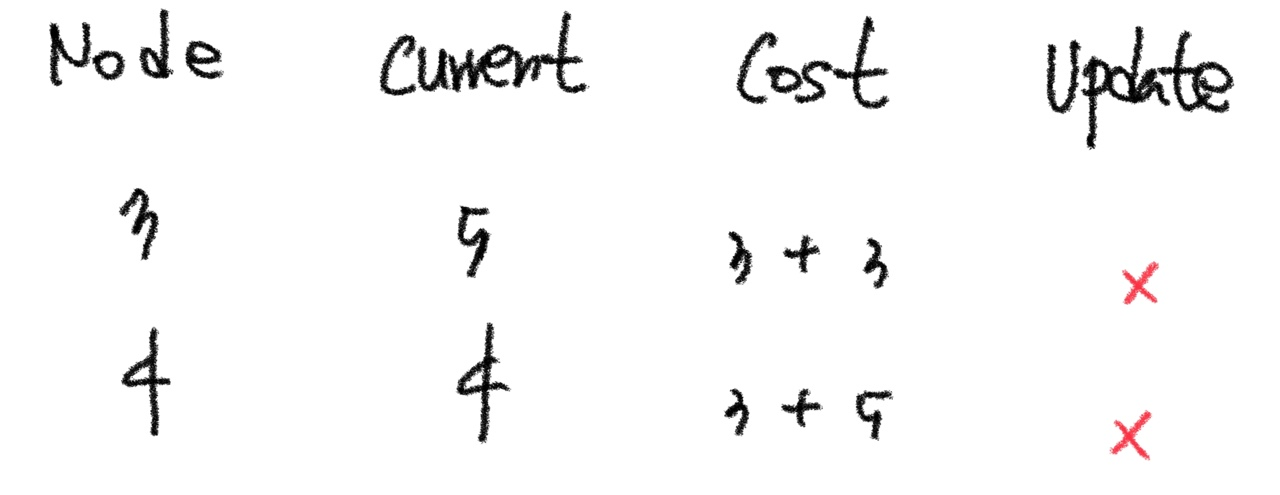 Node Current Cost Update
3 5 3 + 3 ×
4 4 3 + 5 ×